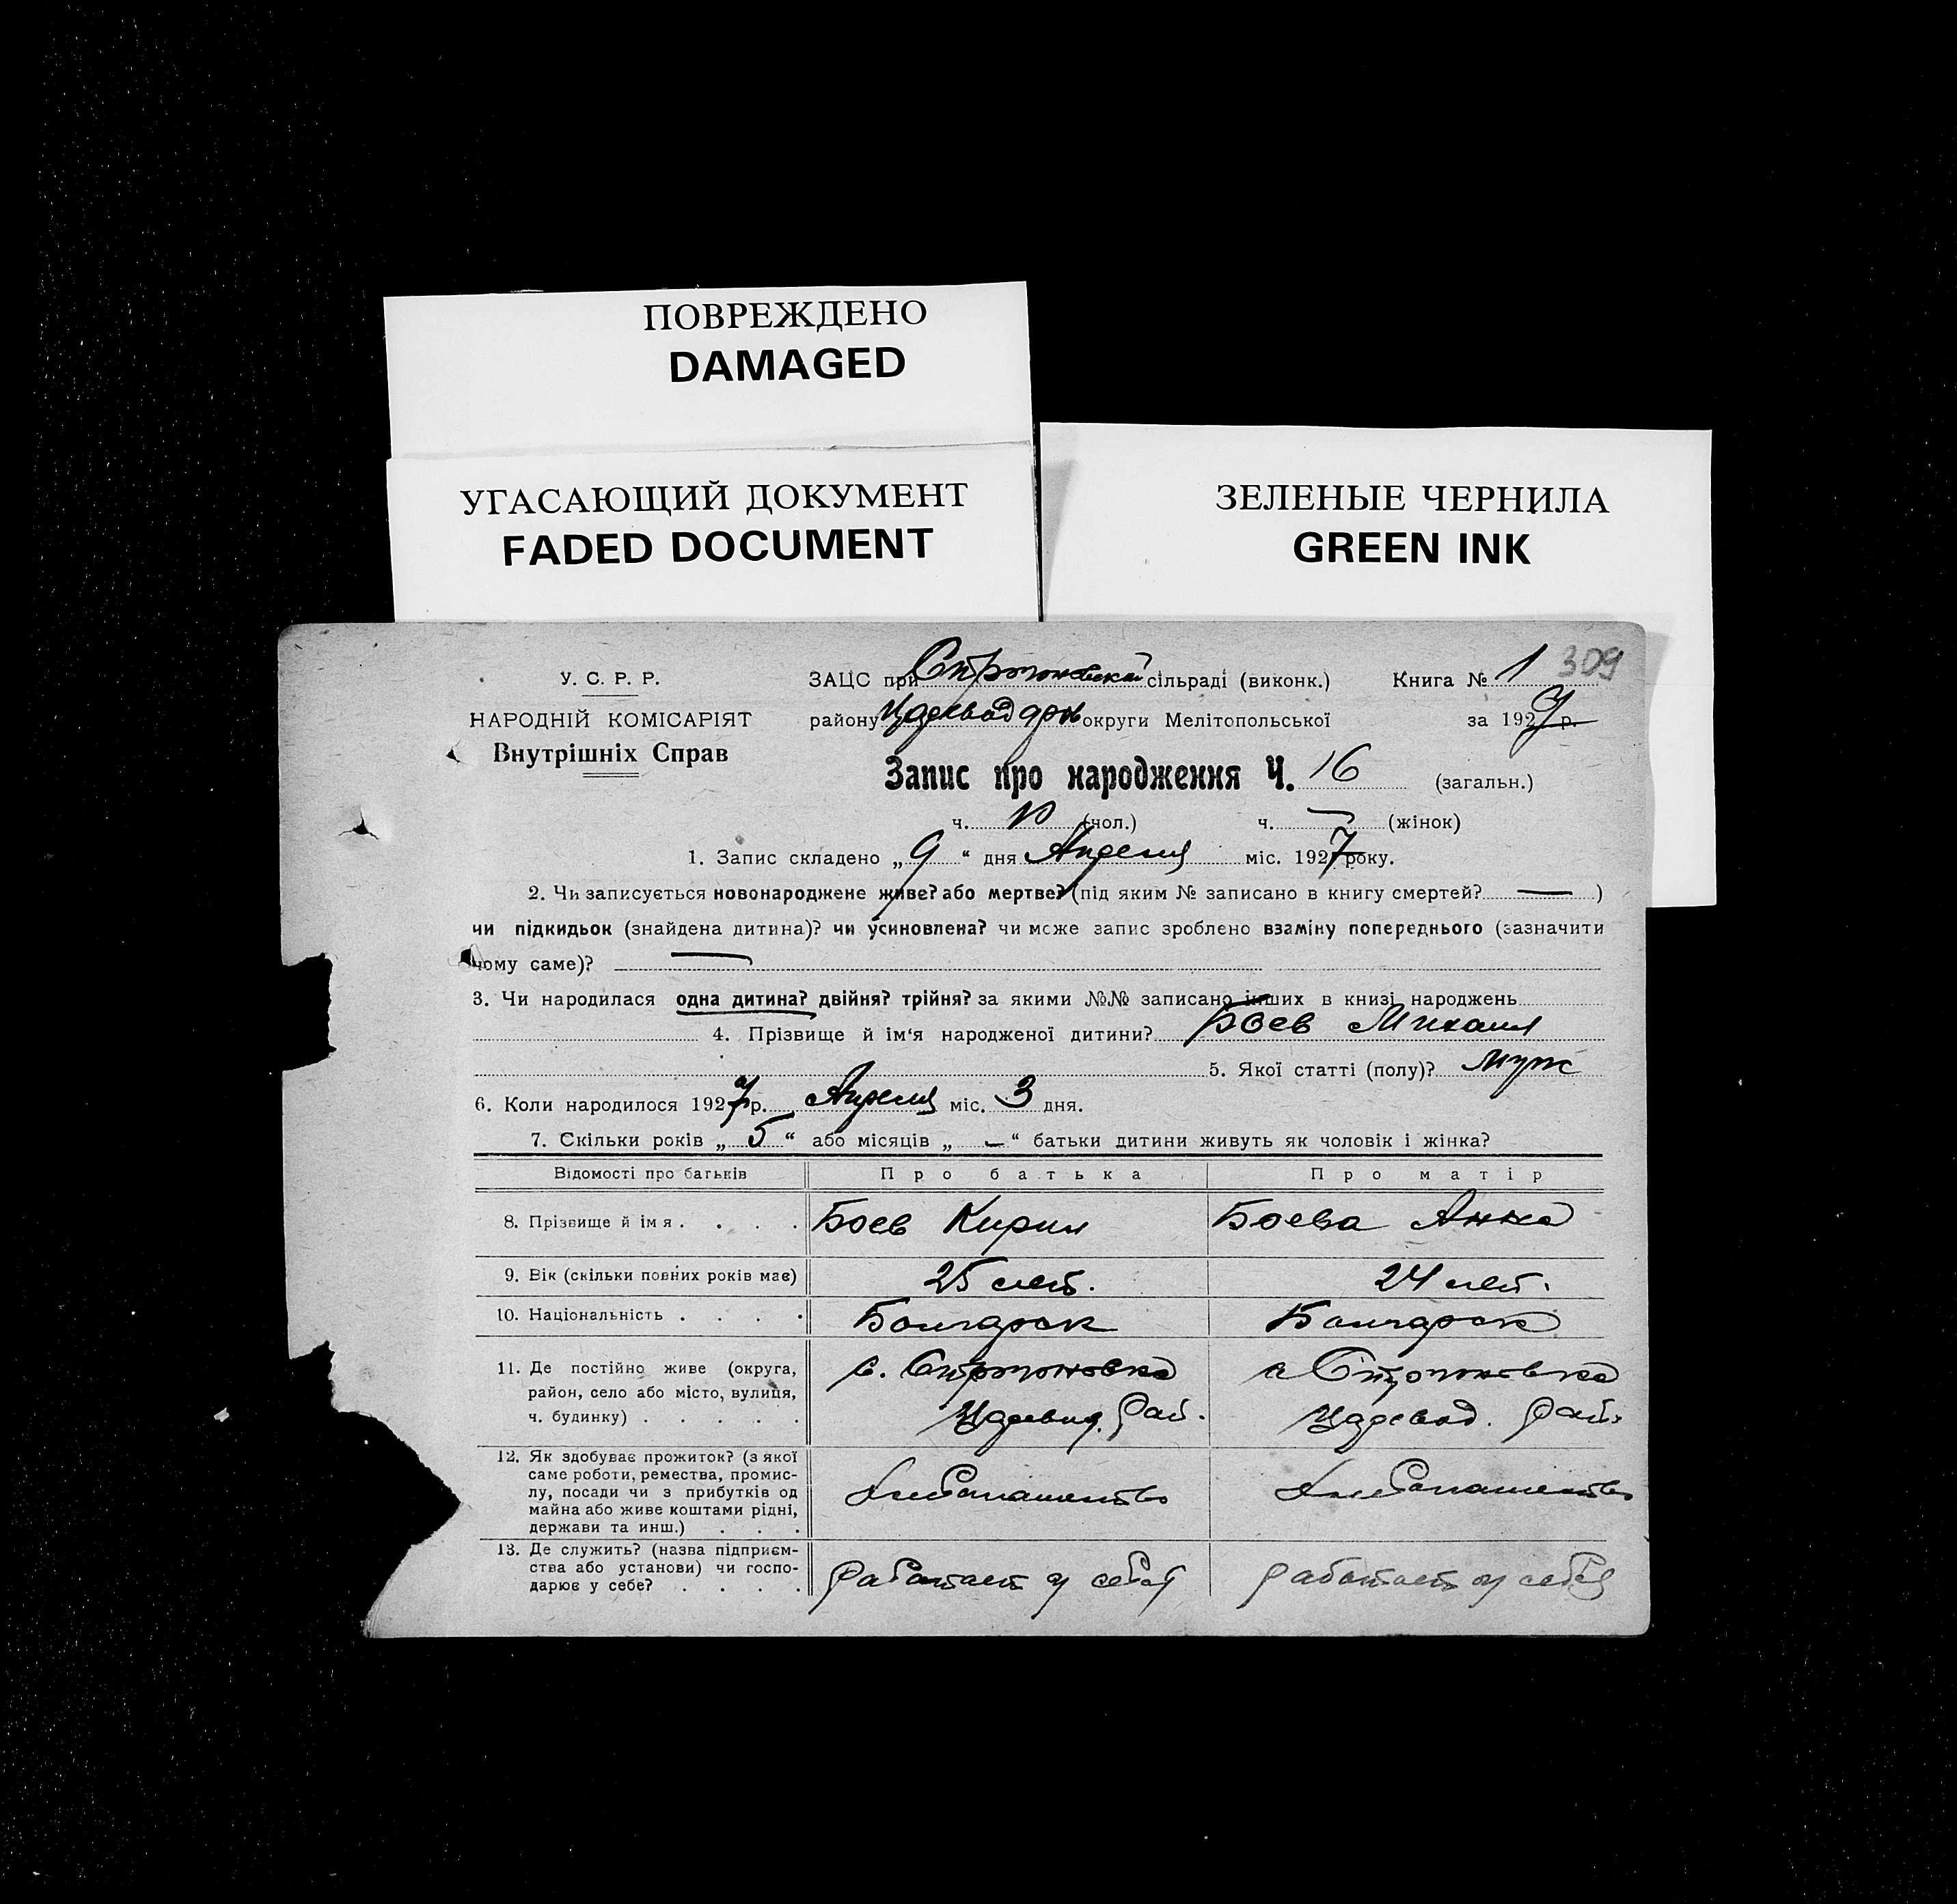 ПОВРЕЖДЕНО
DAMAGED
УГАСАЮЩИЙ ДОКУМЕНТ
FADED DOCUMENT
ЗЕЛЕНЫЕ ЧЕРНИЛА
GREEN INK
309
У. С. Р. Р.
НАРОДНІЙ КОМІСАРІЯТ
Внутрішніх Справ
ЗАЦС при Строгоновской сільраді (виконк.) Книга № 1
району округи Мелітопольської за 1927 р.
Запис про народження Ч. 16 (загальн.)
ч. 10 (чол.) ч. — (жінок)
1. Запис складено „ 9 “ дня Апреля міс. 1927 року.
2. Чи записується новонароджене живе? або мертве? (під яким № записано в книгу смертей? — )
чи підкидьок (знайдена дитина)? чи усиновлена? чи може запис зроблено взаміну попереднього (зазначити
чому саме)? —
3. Чи народилася одна дитина? двійня? трійня? за якими №№ записано інших в книзі народжень
4. Прізвище й ім‘я народженої дитини? Боев Михаил
5. Якої статті (полу)? муж
6. Коли народилося 1927 р. Апреля міс. 3 дня.
7. Скільки років „ 5 “ або місяців „ — “ батьки дитини живуть як чоловік і жінка?
Відомості про батьків Про батька Про матір
8. Прізвище й імя . . . . Боев Кирил Боева Анна
9. Вік (скільки повних років має) 25 лет. 24 лет.
10. Національність . . . . Болгарск Болгарск
11. Де постійно живе (округа, район, село або місто, вулиця, ч. будинку) . . . . .
с. Строгоновка с Строгоновка
Рай. Царевод. Рай.
12. Як здобуває прожиток? (з якої саме роботи, ремества, промислу, посади чи з прибутків од майна або живе коштами рідні, держави та инш.) . . .
Хлебопашество Хлебопашество
13. Де служить? (назва підприємства або установи) чи господарює у себе? . . . .
Работает у себя работает у себя